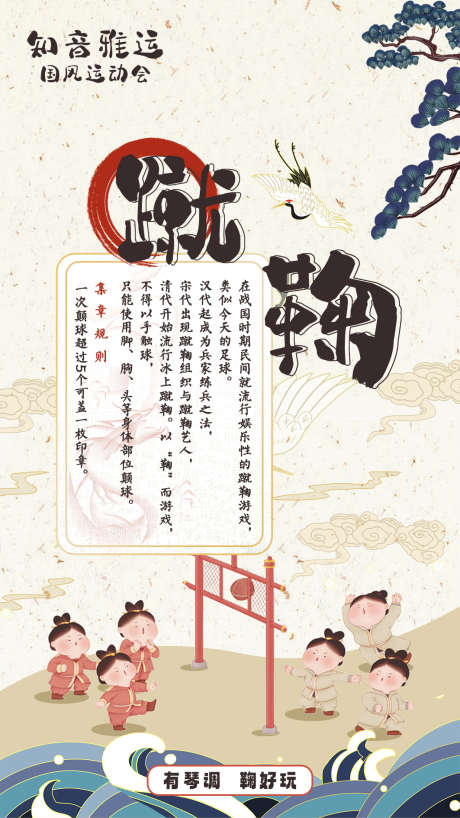 知音雅运
国风运动会
蹴鞠
在战国时期民间就流行娱乐性的蹴鞠游戏，
类似今天的足球。
汉代起成为兵家练兵之法，
宋代出现蹴鞠组织与蹴鞠艺人，
清代开始流行冰上蹴鞠。以“鞠”而游戏，
不得以手触球，
只能使用脚、胸、头等身体部位颠球。
集章规则
一次颠球超过5个可盖一枚印章。
有琴调 鞠好玩